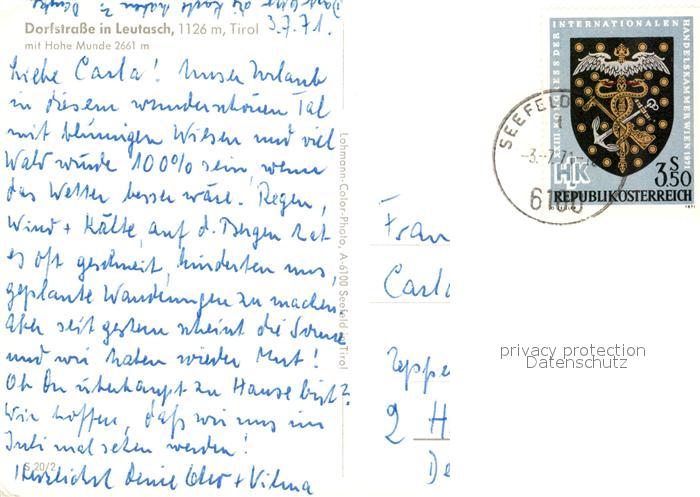 Dorfstraße in Leutasch, 1126 m, Tirol
mit Hohe Munde 2661 m
3.7.71.
Liebe Carla! Unser Urlaub
in diesem wunderschönen Tal
mit blumigen Wiesen und viel
Wald würde 100% sein, wenn
das Wetter besser wäre. Regen,
Wind + Kälte, auf d. Bergen hat
es oft geschneit, hinderten uns,
geplante Wanderungen zu machen.
Aber seit gestern scheint die Sonne
und wir haben wieder Mut!
Ob Du überhaupt zu Hause bist?
Wir hoffen, daß wir uns im
Juli mal sehen werden!
Herzlichst Deine + Vilma
S 20/2
Lohmann-Color-Photo, A-6100 Seefeld in Tirol
XXIII KONGRESS DER INTERNATIONALEN HANDELSKAMMER WIEN 1971
HK
S 3.50
REPUBLIK ÖSTERREICH
SEEFELD
-3.-7.71
6100
Frau
Carla
2 H
privacy protection
Datenschutz